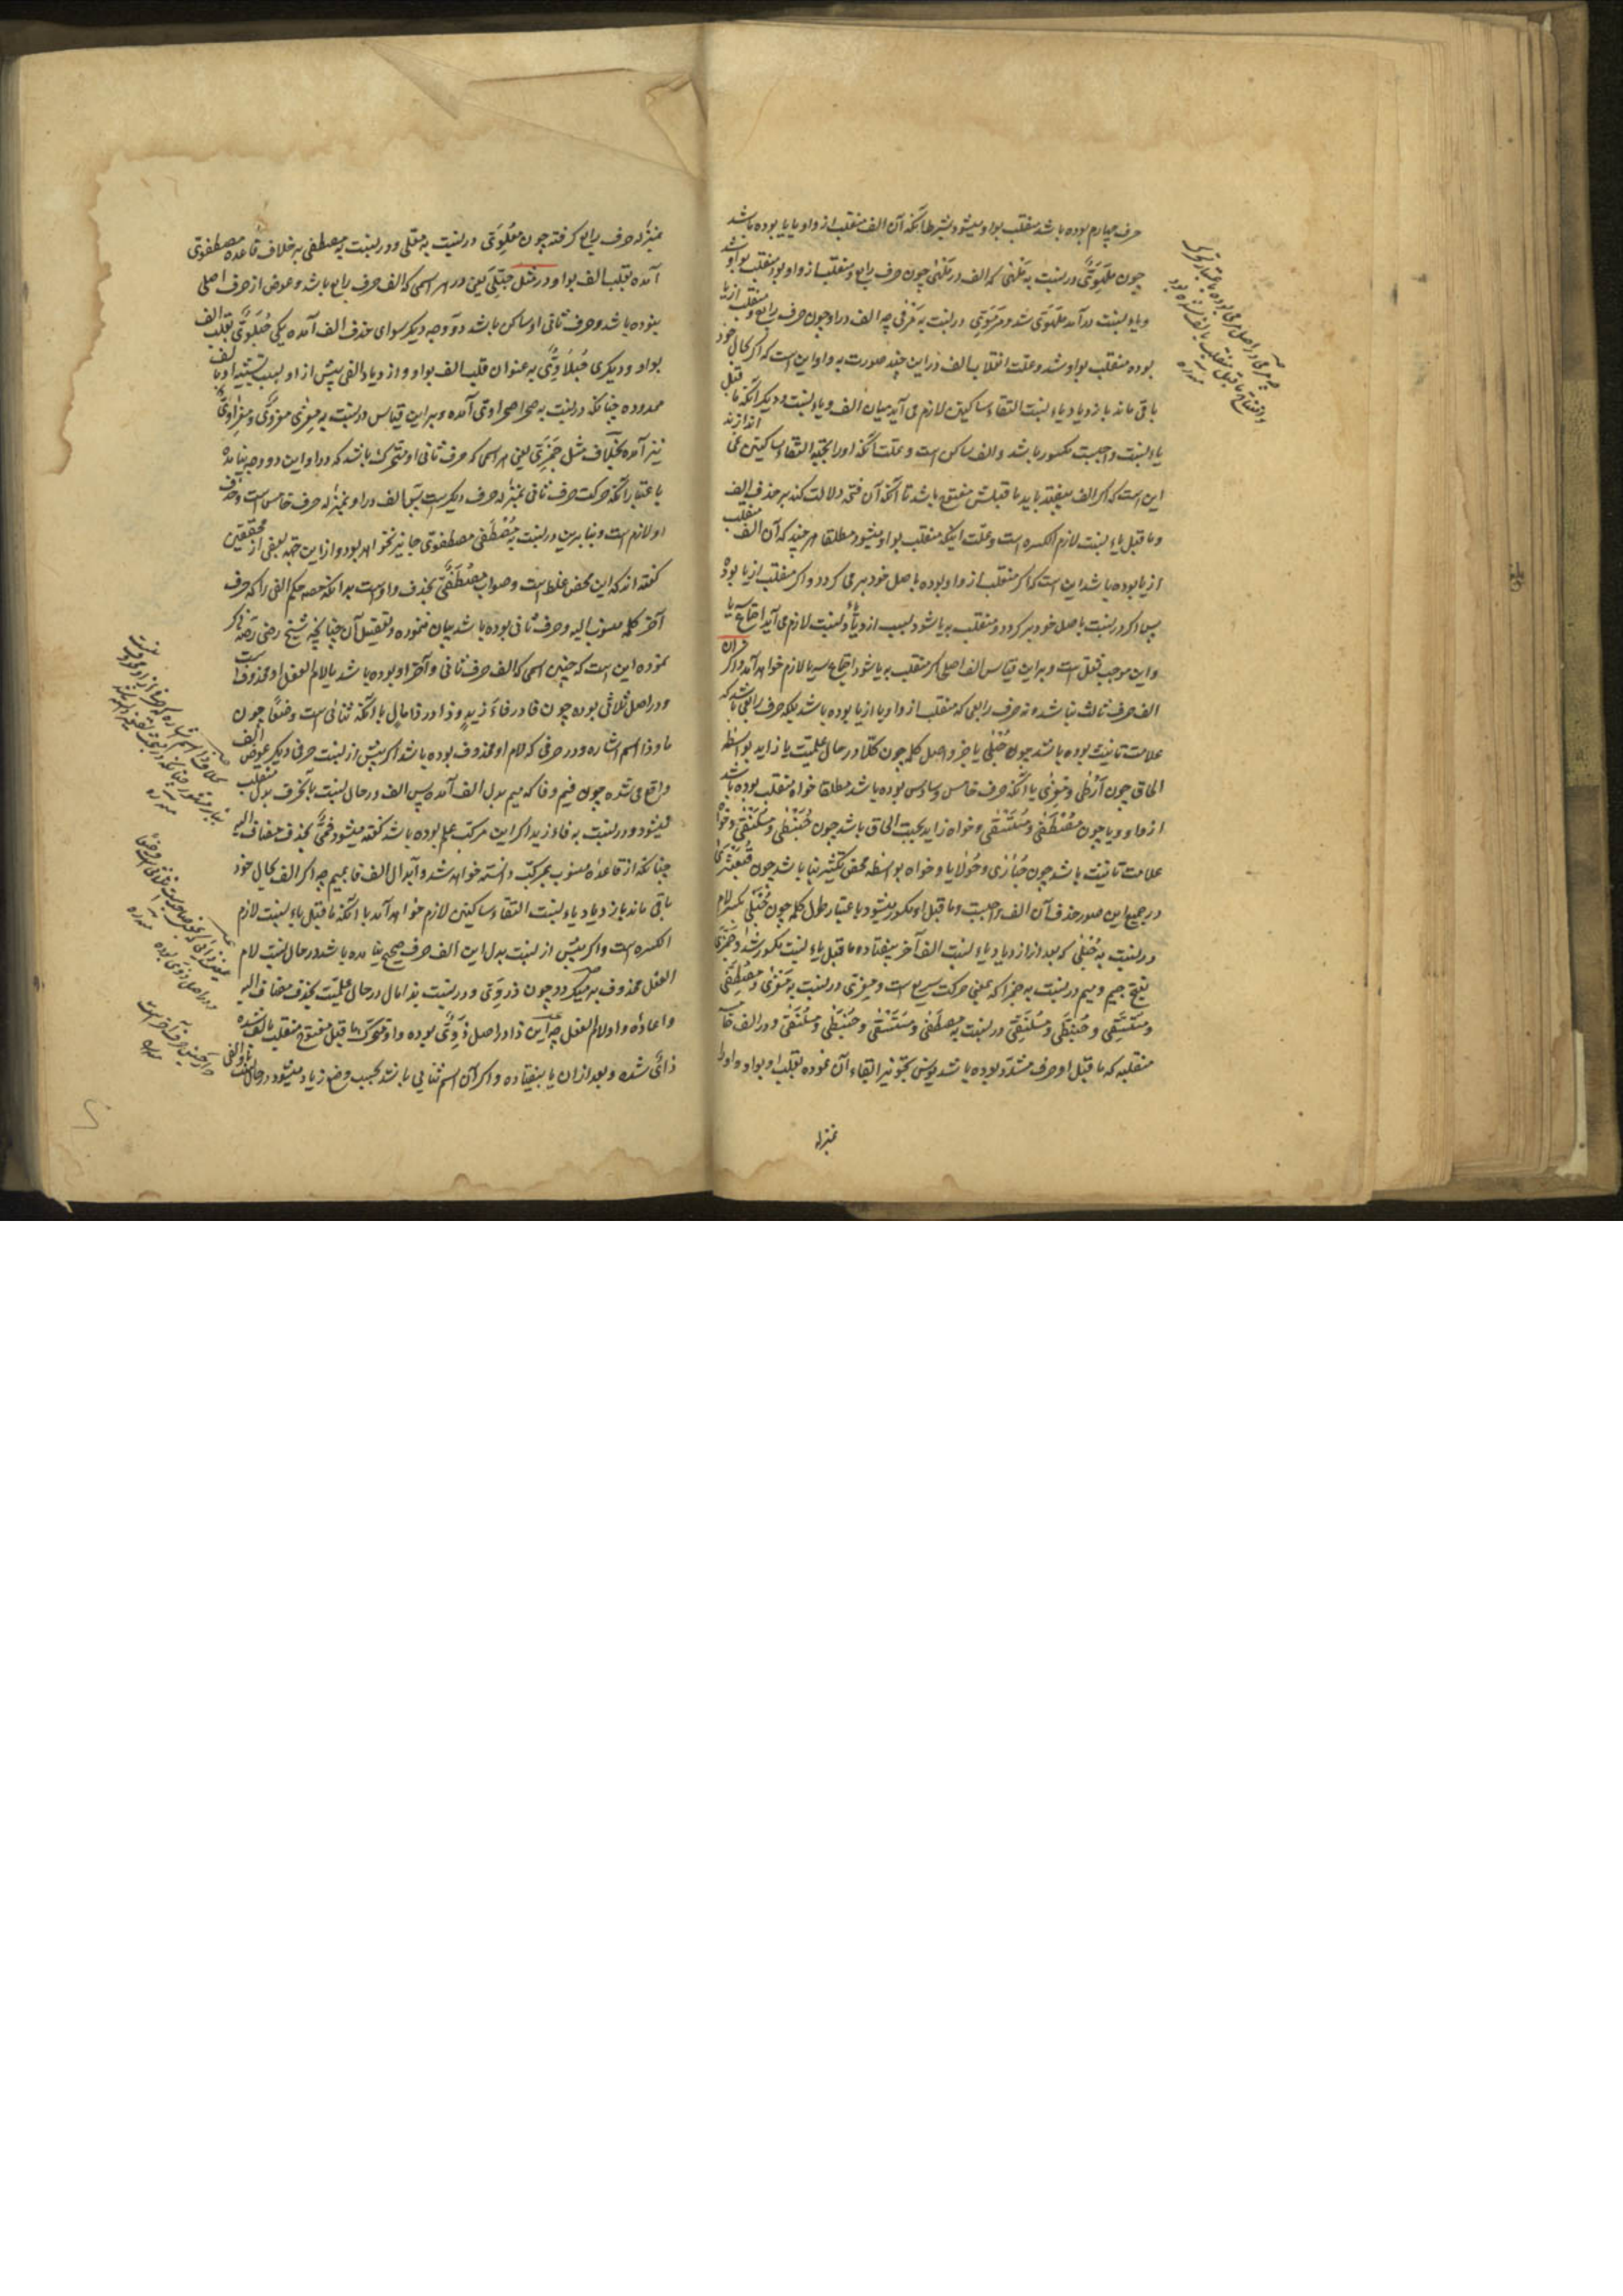 حرف چهارم بوده باشد منقلب بواو میشود بشرط آنکه آن الف منقلب از واو یا یا بوده باشد
چون ملهوی در نسبت به ملهی که الف در ملهی چون حرف رابع و منقلب از واو بود منقلب بواو شد
ویاء نسبت در آمد ملهوی شد و مرموی در نسبت به مرمی چه الف در او چون حرف رابع و منقلب از یا
بوده منقلب بواو شد و علت انقلاب الف در این چند صورت به واو این است که اگر بحال خود
باقی ماند بازدیاد یاء نسبت التقاء ساکنین لازم می آید میان الف و یاء نسبت و دیگر آنکه ما قبل
یاء نسبت واجبست مکسور باشد و الف ساکن است و علت آنکه او را بجهة التقاء ساکنین نمی اندازند
این است که اگر الف بیفتد باید ما قبلش مفتوح باشد تا آنکه آن فتحه دلالت کند بر حذف الف
و ما قبل یاء نسبت لازم الکسره است و علت اینکه منقلب بواو میشود مطلقا هر چند که آن الف منقلب
از یا بوده باشد این است که اگر منقلب از واو بوده باصل خود بر می گردد و اگر منقلب از یا بوده
پس اگر در نسبت باصل خود بر گردد و منقلب به یا شود بسبب ازدیاد یاء نسبت لازم می آید اجتماع سه یا
و این موجب ثقل است و بر این قیاس الف اصلی اگر منقلب به یا شود اجتماع سه یا لازم خواهد آمد و اگر آن
الف حرف ثالث نباشد و نه حرف رابعی که منقلب از واو یا از یا بوده باشد بلکه حرف رابعی باشد که
علامت تانیث بوده باشد چون حبلی یا جزو اصل کلمه چون کلتا در حال علمیت یا زاید بواسطه
الحاق چون ارطی و معزی یا آنکه حرف خامس و سادس بوده باشد مطلقا خواه منقلب بوده باشد
از واو و یا چون مصطفی و مستسقی و خواه زاید بجهت الحاق باشد چون حبنطی و مسلنقی و خواه
علامت تانیث باشد چون حبازی و حولایا و خواه بواسطه محض تکثیر بنا باشد چون قبعثری
در جمیع این صور حذف آن الف واجبست و ما قبل او مکسور میشود باعتبار طول کلمه چون حبلی بکسر لام
در نسبت به حبلی که بعد از ازدیاد یاء نسبت الف آخر بیفتاده ما قبل یاء نسبت مکسور شد و جمزی
بفتح جیم و میم در نسبت به جمزا که بمعنی حرکت سریع است و معزی در نسبت به معزی و مصطفی
و مستسقی و حبنطی و مسلنقی در نسبت به مصطفی و مستسقی و حبنطی و مسلنقی و در الف خامسه
منقلبه که ما قبل او حرف مشدد بوده باشد یونس تجویز ابقاء آن نموده بقلب او بواو و او را
بمنزله
چه مرمی در اصل مرمی بوده باعتبار تحرک یا
وانفتاح ما قبل منقلب بالف شده بود
منه ره
بمنزله حرف رابع گرفته چون معلوی در نسبت به معلی و در نسبت به مصطفی بر خلاف قاعده مصطفوی
آمده بقلب الف بواو و در مثل حبلی یعنی در هر اسمی که الف حرف رابع باشد و عوض از حرف اصلی
نبوده باشد و حرف ثانی او ساکن باشد دو وجه دیگر سوای حذف الف آمده یکی حبلوی بقلب الف
بواو و دیگری حبلاوی به عنوان قلب الف بواو و ازدیاد الفی پیش از او بسبب تشبیه او بالف
ممدوده چنانکه در نسبت به صحرا صحراوی آمده و بر این قیاس در نسبت به معزی معزوی و معزاوی
نیز آمده بخلاف مثل جمزی یعنی هر اسمی که حرف ثانی او متحرک باشد که در او این دو وجه نیامده
باعتبار آنکه حرکت حرف ثانی بمنزله حرف دیگر است پس الف در او بمنزله حرف خامس است و حذف
او لازم است و بنابر این در نسبت به مصطفی مصطفوی جایز نخواهد بود و از این جهة بعضی از محققین
گفته اند که این محض غلط است و صواب مصطفی بحذف واو است بدانکه حکم الفی را که حرف
آخر کلمه منسوب الیه و حرف ثانی بوده باشد بیان ننموده و تفصیل آن چنانچه شیخ رضی رحمه ذکر
نموده این است که چنین اسمی که الف حرف ثانی و آخر او بوده باشد یا لام الفعل او محذوف است
و در اصل ثلاثی بوده چون فا در فاء زید و ذا در ذا مال یا آنکه ثنائی است وضعا چون
ما و ذا اسم اشاره و در حرفی که لام او محذوف بوده باشد اگر پیش از نسبت حرفی دیگر عوض الف
واقع می شده چون فیم و فا که میم بدل الف آمده پس الف در حال نسبت بآنحرف بدل منقلب
میشود و در نسبت به فاء زید اگر این مرکب علم بوده باشد گفته میشود فمی بحذف مضاف الیه
چنانکه از قاعده منسوب بمرکب دانسته خواهد شد و ابدال الف فا بمیم چه اگر الف بحال خود
باقی ماند بازدیاد یاء نسبت التقاء ساکنین لازم خواهد آمد با آنکه ما قبل یاء نسبت لازم
الکسره است و اگر پیش از نسبت بدل این الف حرف صحیح نیامده باشد در حال نسبت لام
الفعل محذوف بر میگردد چون ذووی در نسبت به ذا مال در حال علمیت بحذف مضاف الیه
و اعاده واو لام الفعل چه این ذا در اصل ذوی بوده واو متحرک ما قبل مفتوح منقلب بالف شده
ذائی شده و بعد از آن یا بیفتاده و اگر آن اسم ثنایی باشد بحسب وضع زیاد میشود در حال نسبت